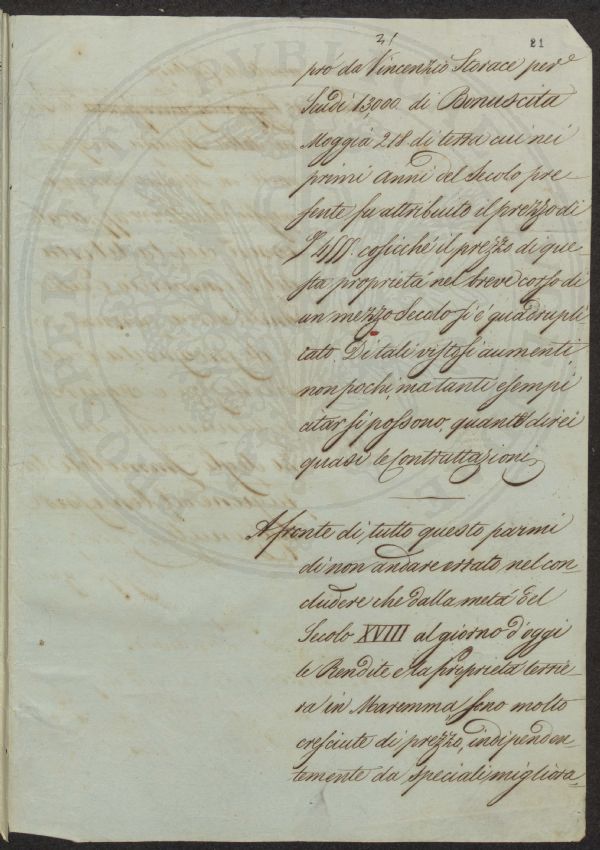 21
21
pró da Vincenzio Storace per
Scudi 13,000. di Bonuscita
Moggia 218. di terra cui nei
primi anni del Secolo pre-
sente fu attribuito il prezzo di
cosicché il prezzo di que-
sta proprietá nel breve corso di
un mezzo Secolo si é quadrupli-
cato. Di tali vistosi aumenti
non pochi, ma tanti esempi
citar si possono, quante direi
quasi le Contrattazioni,
A fronte di tutto questo parmi
di non andare errato nel con-
cludere che dalla metá del
Secolo XVIII al giorno d'oggi
le Rendite e la proprietá terrie-
ra in Maremma, sono molto
cresciute di prezzo, indipenden-
temente da speciali migliora-